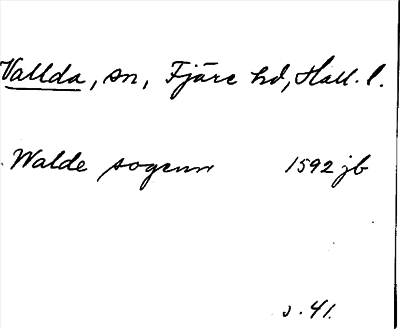 Vallda, sn, Fjäre hd, Hall. l.
Walde sogenn 1592 jb
s. 41.